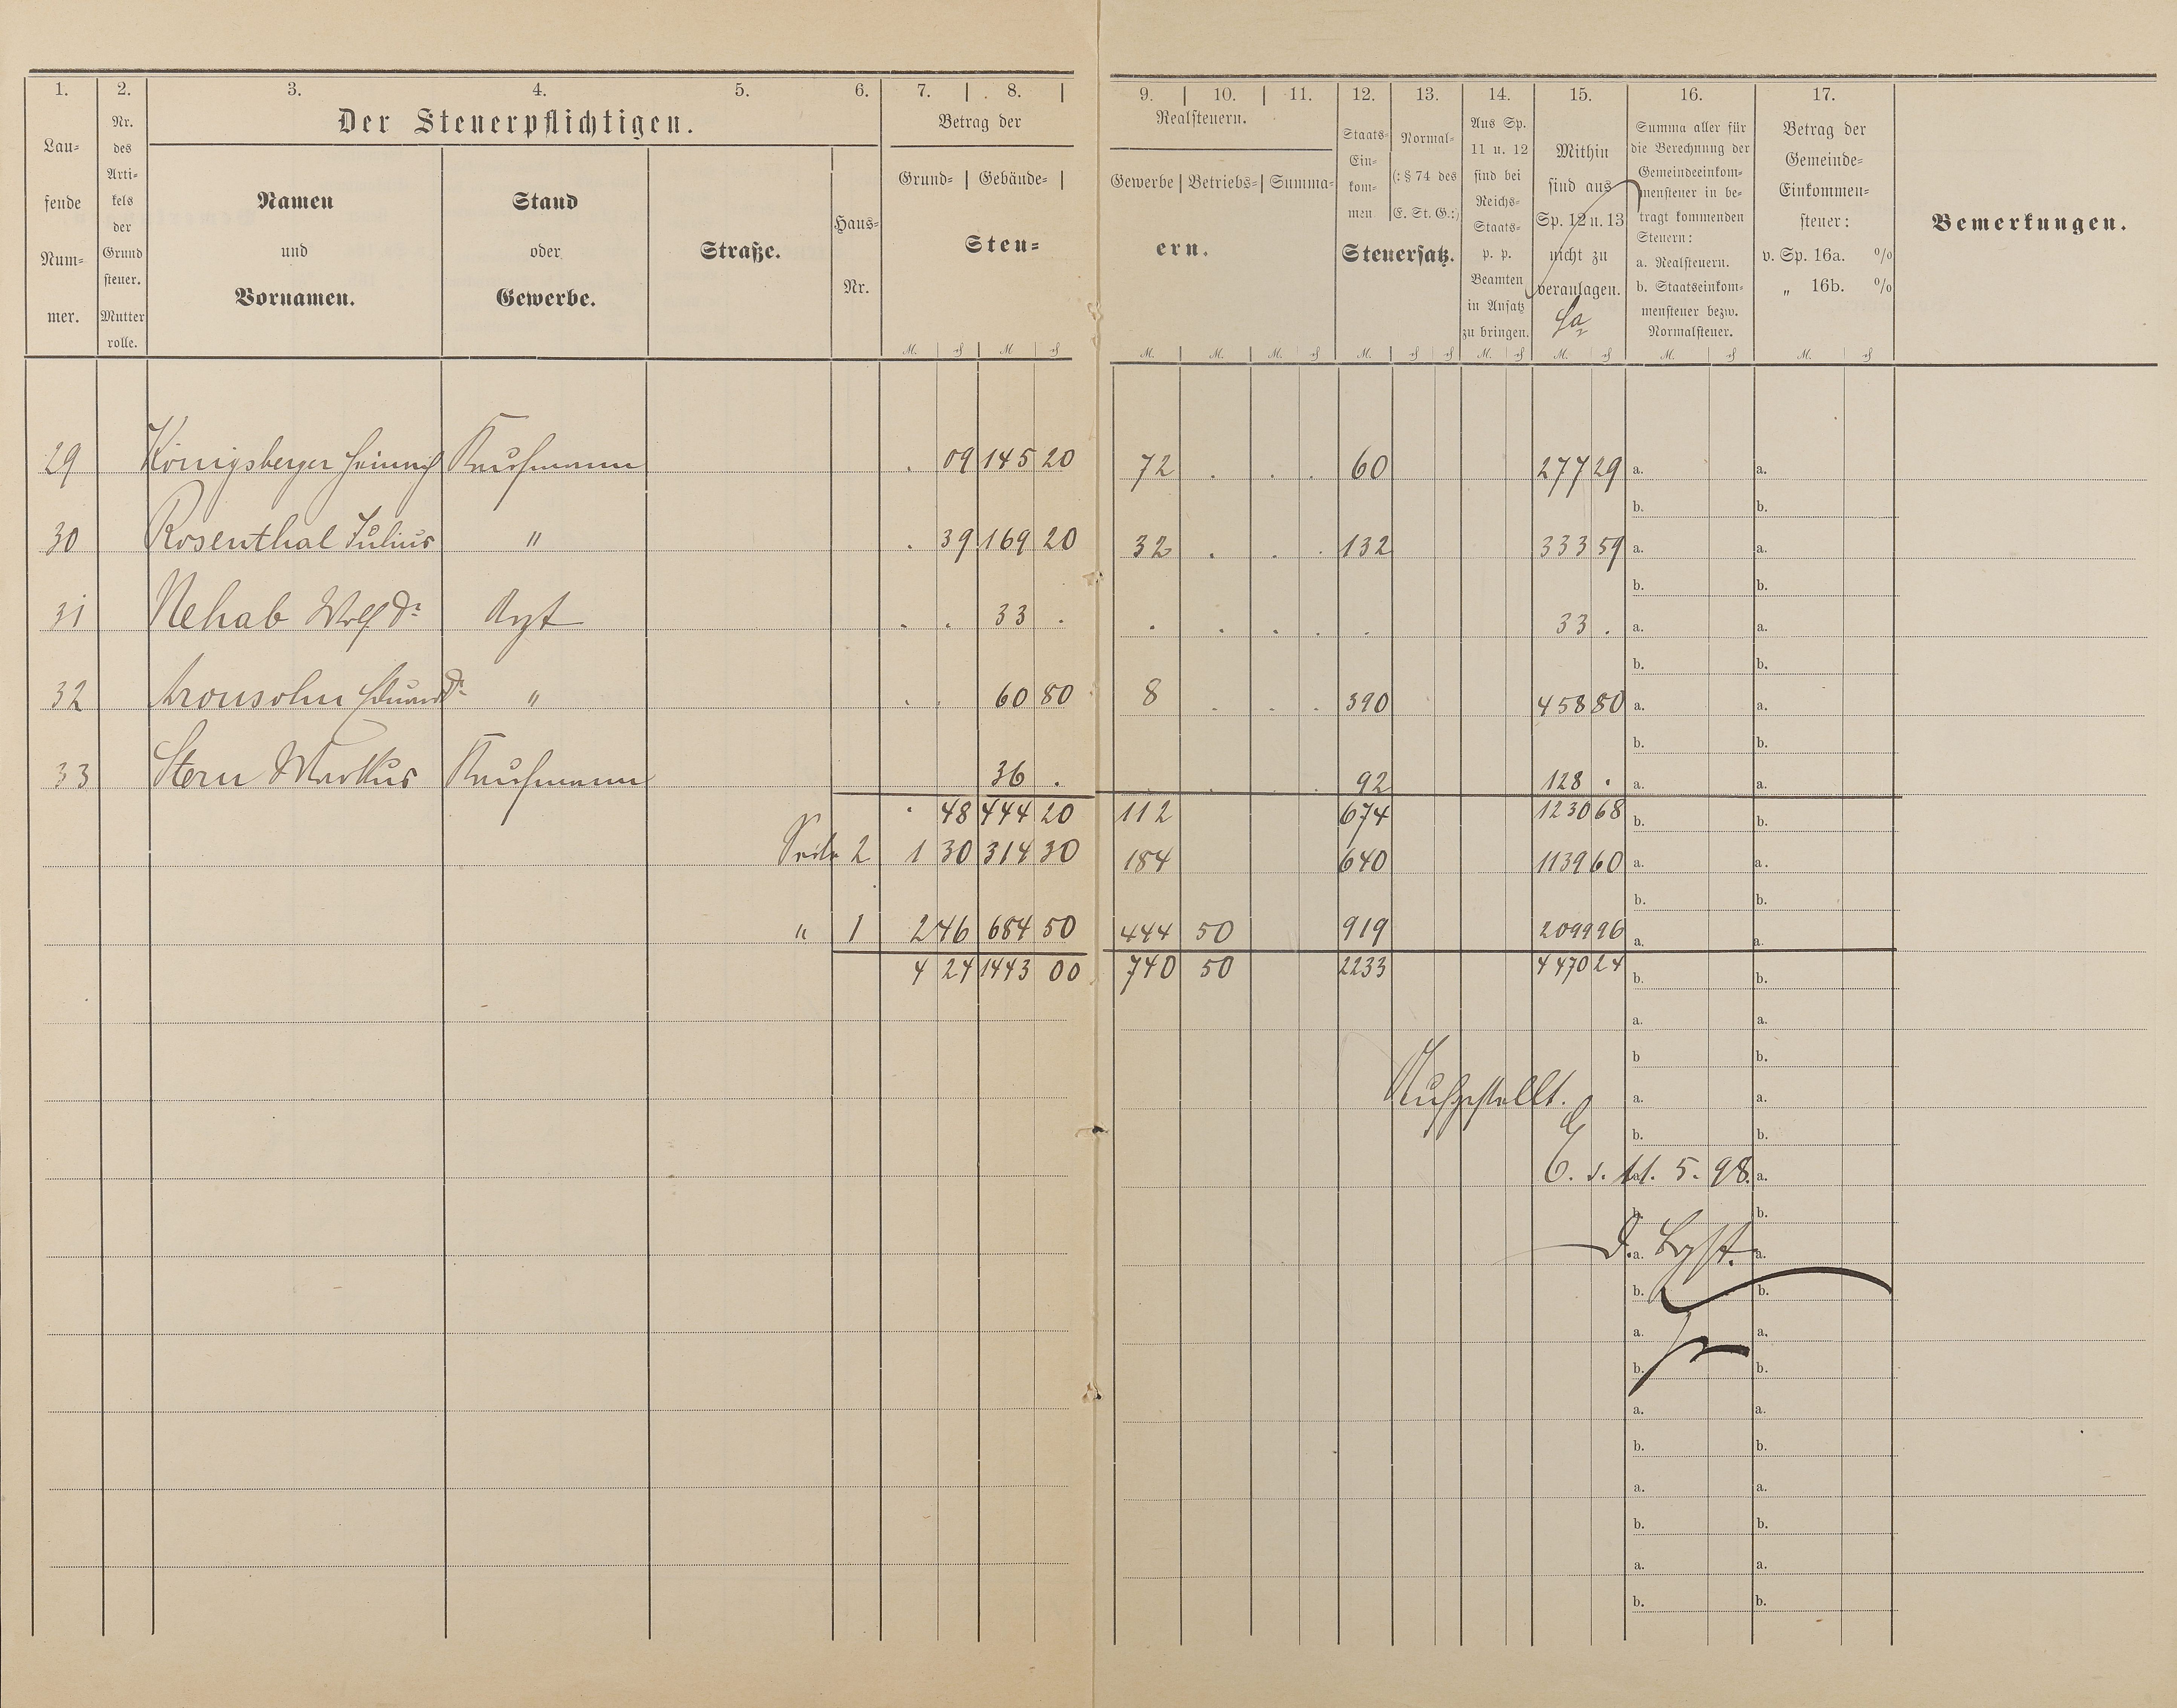 1. 2. 3. 4. 5. 6. 7. 8. 9. 10. 11. 12. 13. 14. 15. 16. 17.
Lau-
fende
Num-
mer.
Nr.
des
Arti-
kels
der
Grund
steuer.
Mutter
rolle.
Der Steuerpflichtigen.
Namen
und
Vornamen.
Stand
oder
Gewerbe.
Straße.
Haus-
Nr.
Betrag der
Grund- Gebäude-
Steu-
Realsteuern.
Gewerbe Betriebs- Summa-
ern.
Staats-
Ein-
kom-
men
Normal-
(: § 74 des
E. St. G.:)
Steuersatz.
Aus Sp.
11 u. 12
sind bei
Reichs-
Staats-
p. p.
Beamten
in Ansatz
zu bringen.
Mithin
sind aus
Sp. 12 u. 13
nicht zu
veranlagen.
Sa
Summa aller für
die Berechnung der
Gemeindeeinkom-
mensteuer in be-
tragt kommenden
Steuern:
a. Realsteuern.
b. Staatseinkom-
mensteuer bezw.
Normalsteuer.
Betrag der
Gemeinde-
Einkommen-
steuer:
v. Sp. 16a. %
„ 16b. %
Bemerkungen.
29 Königsberger Heinrich Kaufmann . 09 145 20 72 . . . 60 277 29 a. a.
b. b.
30 Rosenthal Julius " . 39 169 20 32 . . . 132 333 59 a. a.
b. b.
31 Nehab Wolf Dr Arzt . . 33 . . . . . . 33 . a. a.
b. b.
32 Aronsohn Eduard Dr " . . 60 80 8 . . . 390 458 80 a. a.
b. b.
33 Stern Markus Kaufmann 36 . . . . . 92 128 . a. a.
. 48 444 20 112 674 1230 68 b. b.
Seite 2 1 30 314 30 184 640 1139 60 a. a.
b. b.
" 1 2 46 684 50 444 50 919 2099 96 a. a.
4 24 1443 00 740 50 2233 4470 24 b. b.
a. a.
b b.
Aufgestellt. a. a.
b. b.
11. 5. 98. a.
b. b.
a. a.
b. b.
a. a.
b. b.
a. a.
b. b.
a. a.
b. b.
a. a.
b. b.